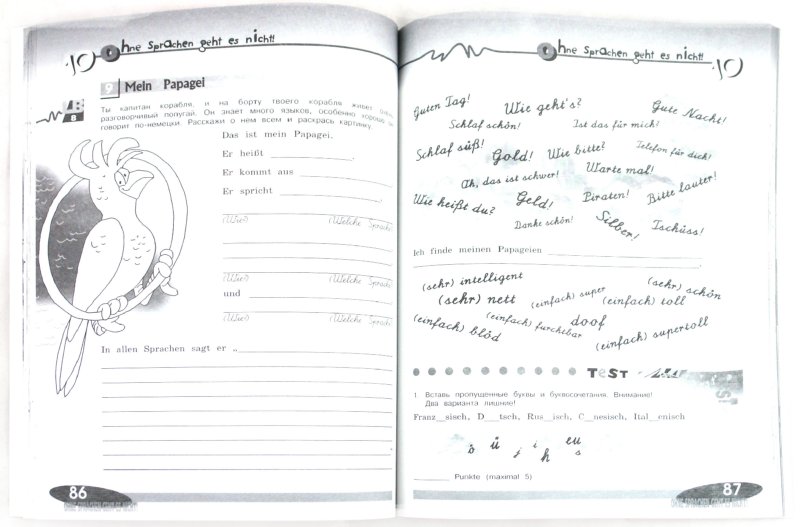 10 Ohne Sprachen geht es nicht!
9 Mein Papagei
AB
8
Ты капитан корабля, и на борту твоего корабля живет очень
разговорчивый попугай. Он знает много языков, особенно хорошо он
говорит по-немецки. Расскажи о нем всем и раскрась картинку.
Das ist mein Papagei.
Er heißt ____________.
Er kommt aus ____________.
Er spricht ____________,
(Wie?) (Welche Sprache
(Wie?) (Welche Sprache
und ____________
(Wie?) (Welche Sprache
In allen Sprachen sagt er „____________
86
OHNE SPRACHEN GEHT ES NICHT!
Ohne Sprachen geht es nicht! 10
Guten Tag! Wie geht's? Gute Nacht!
Schlaf schön! Ist das für mich!
Schlaf süß! Gold! Wie bitte? Telefon für dich!
Ah, das ist schwer! Warte mal!
Wie heißt du? Geld! Piraten! Bitte lauter!
Danke schön! Silber! Tschüss!
Ich finde meinen Papageien ____________
____________.
(sehr) intelligent (sehr) schön
(sehr) nett (einfach) super (einfach) toll
(einfach) blöd (einfach) furchtbar doof (einfach) supertoll
TEST
1. Вставь пропущенные буквы и буквосочетания. Внимание!
Два варианта лишние!
Franz__sisch, D___tsch, Rus__isch, C__nesisch, Ital__enisch
ö ü j i h eu s
______ Punkte (maximal 5)
87
OHNE SPRACHEN GEHT ES NICHT!